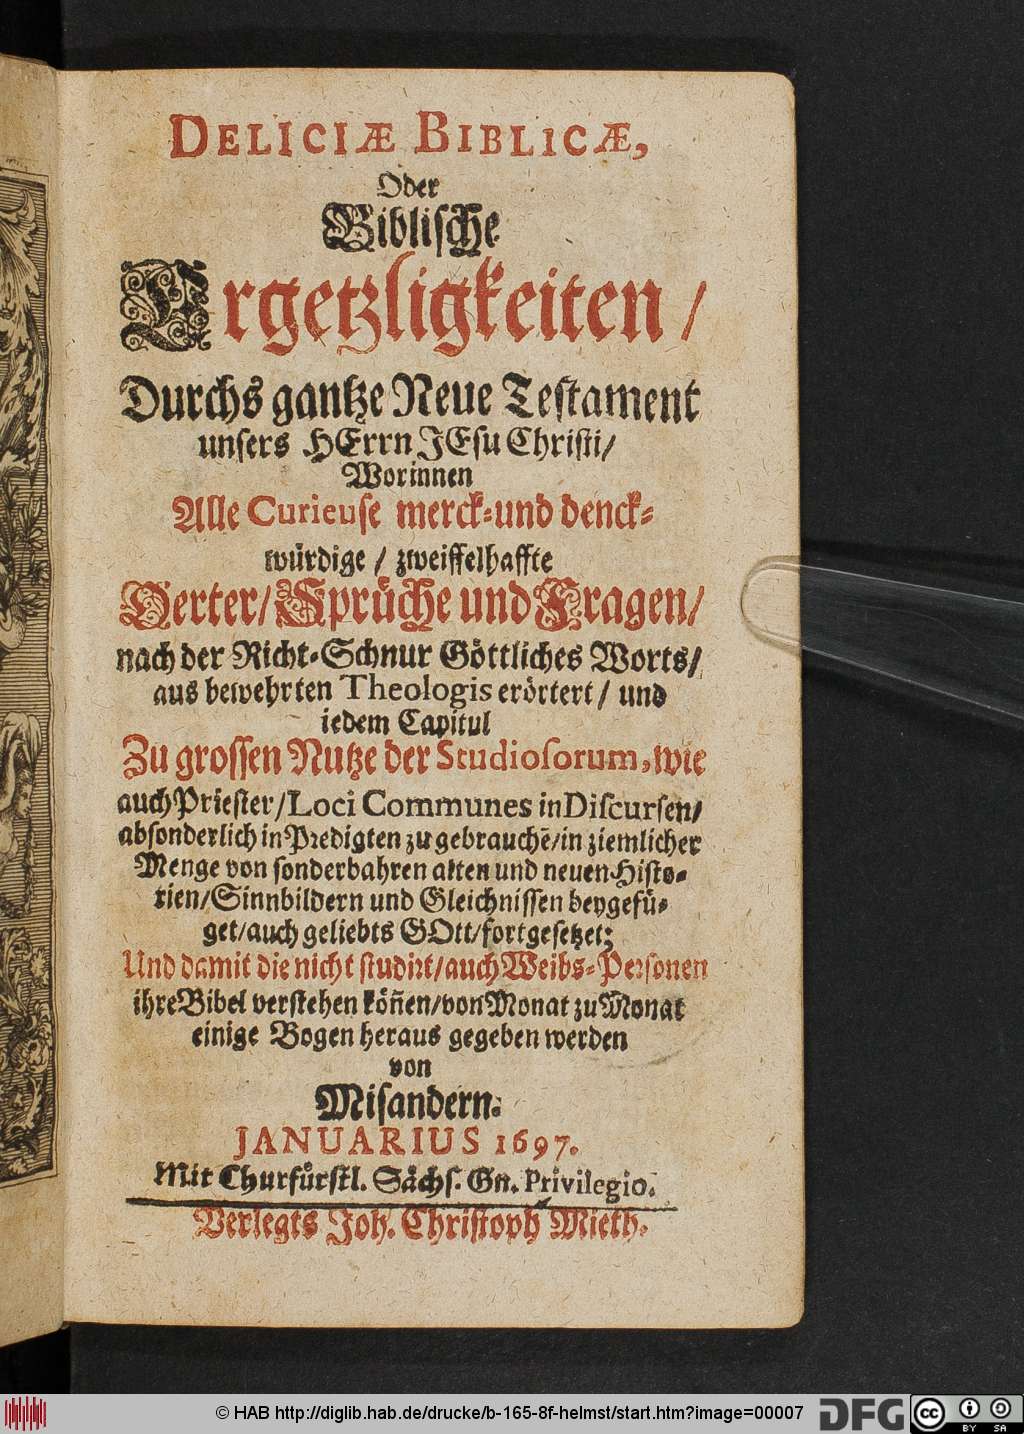 DELICIÆ BIBLICÆ,
Oder
Biblische
Ergetzligkeiten /
Durchs gantze Neue Testament
unsers HErrn JEsu Christi /
Worinnen
Alle Curieuse merck-und denck-
würdige / zweiffelhaffte
Oerter / Sprüche und Fragen /
nach der Richt-Schnur Göttliches Worts /
aus bewehrten Theologis erörtert / und
iedem Capitul
Zu grossen Nutze der Studiosorum, wie
auch Priester / Loci Communes in Discursen /
absonderlich in Predigten zu gebrauchē / in ziemlicher
Menge von sonderbahren alten und neuen Histo-
rien / Sinnbildern und Gleichnissen beygefü-
get / auch geliebts GOtt / fortgesetzet;
Und damit die nicht studirt / auch Weibs-Personen
ihre Bibel verstehen köñen / von Monat zu Monat
einige Bogen heraus gegeben werden
von
Misandern.
JANUARIUS 1697.
Mit Churfürstl. Sächs. Gn. Privilegio.
Verlegts Joh. Christoph Mieth.
© HAB http://diglib.hab.de/drucke/b-165-8f-helmst/start.htm?image=00007
DFG
cc
BY SA